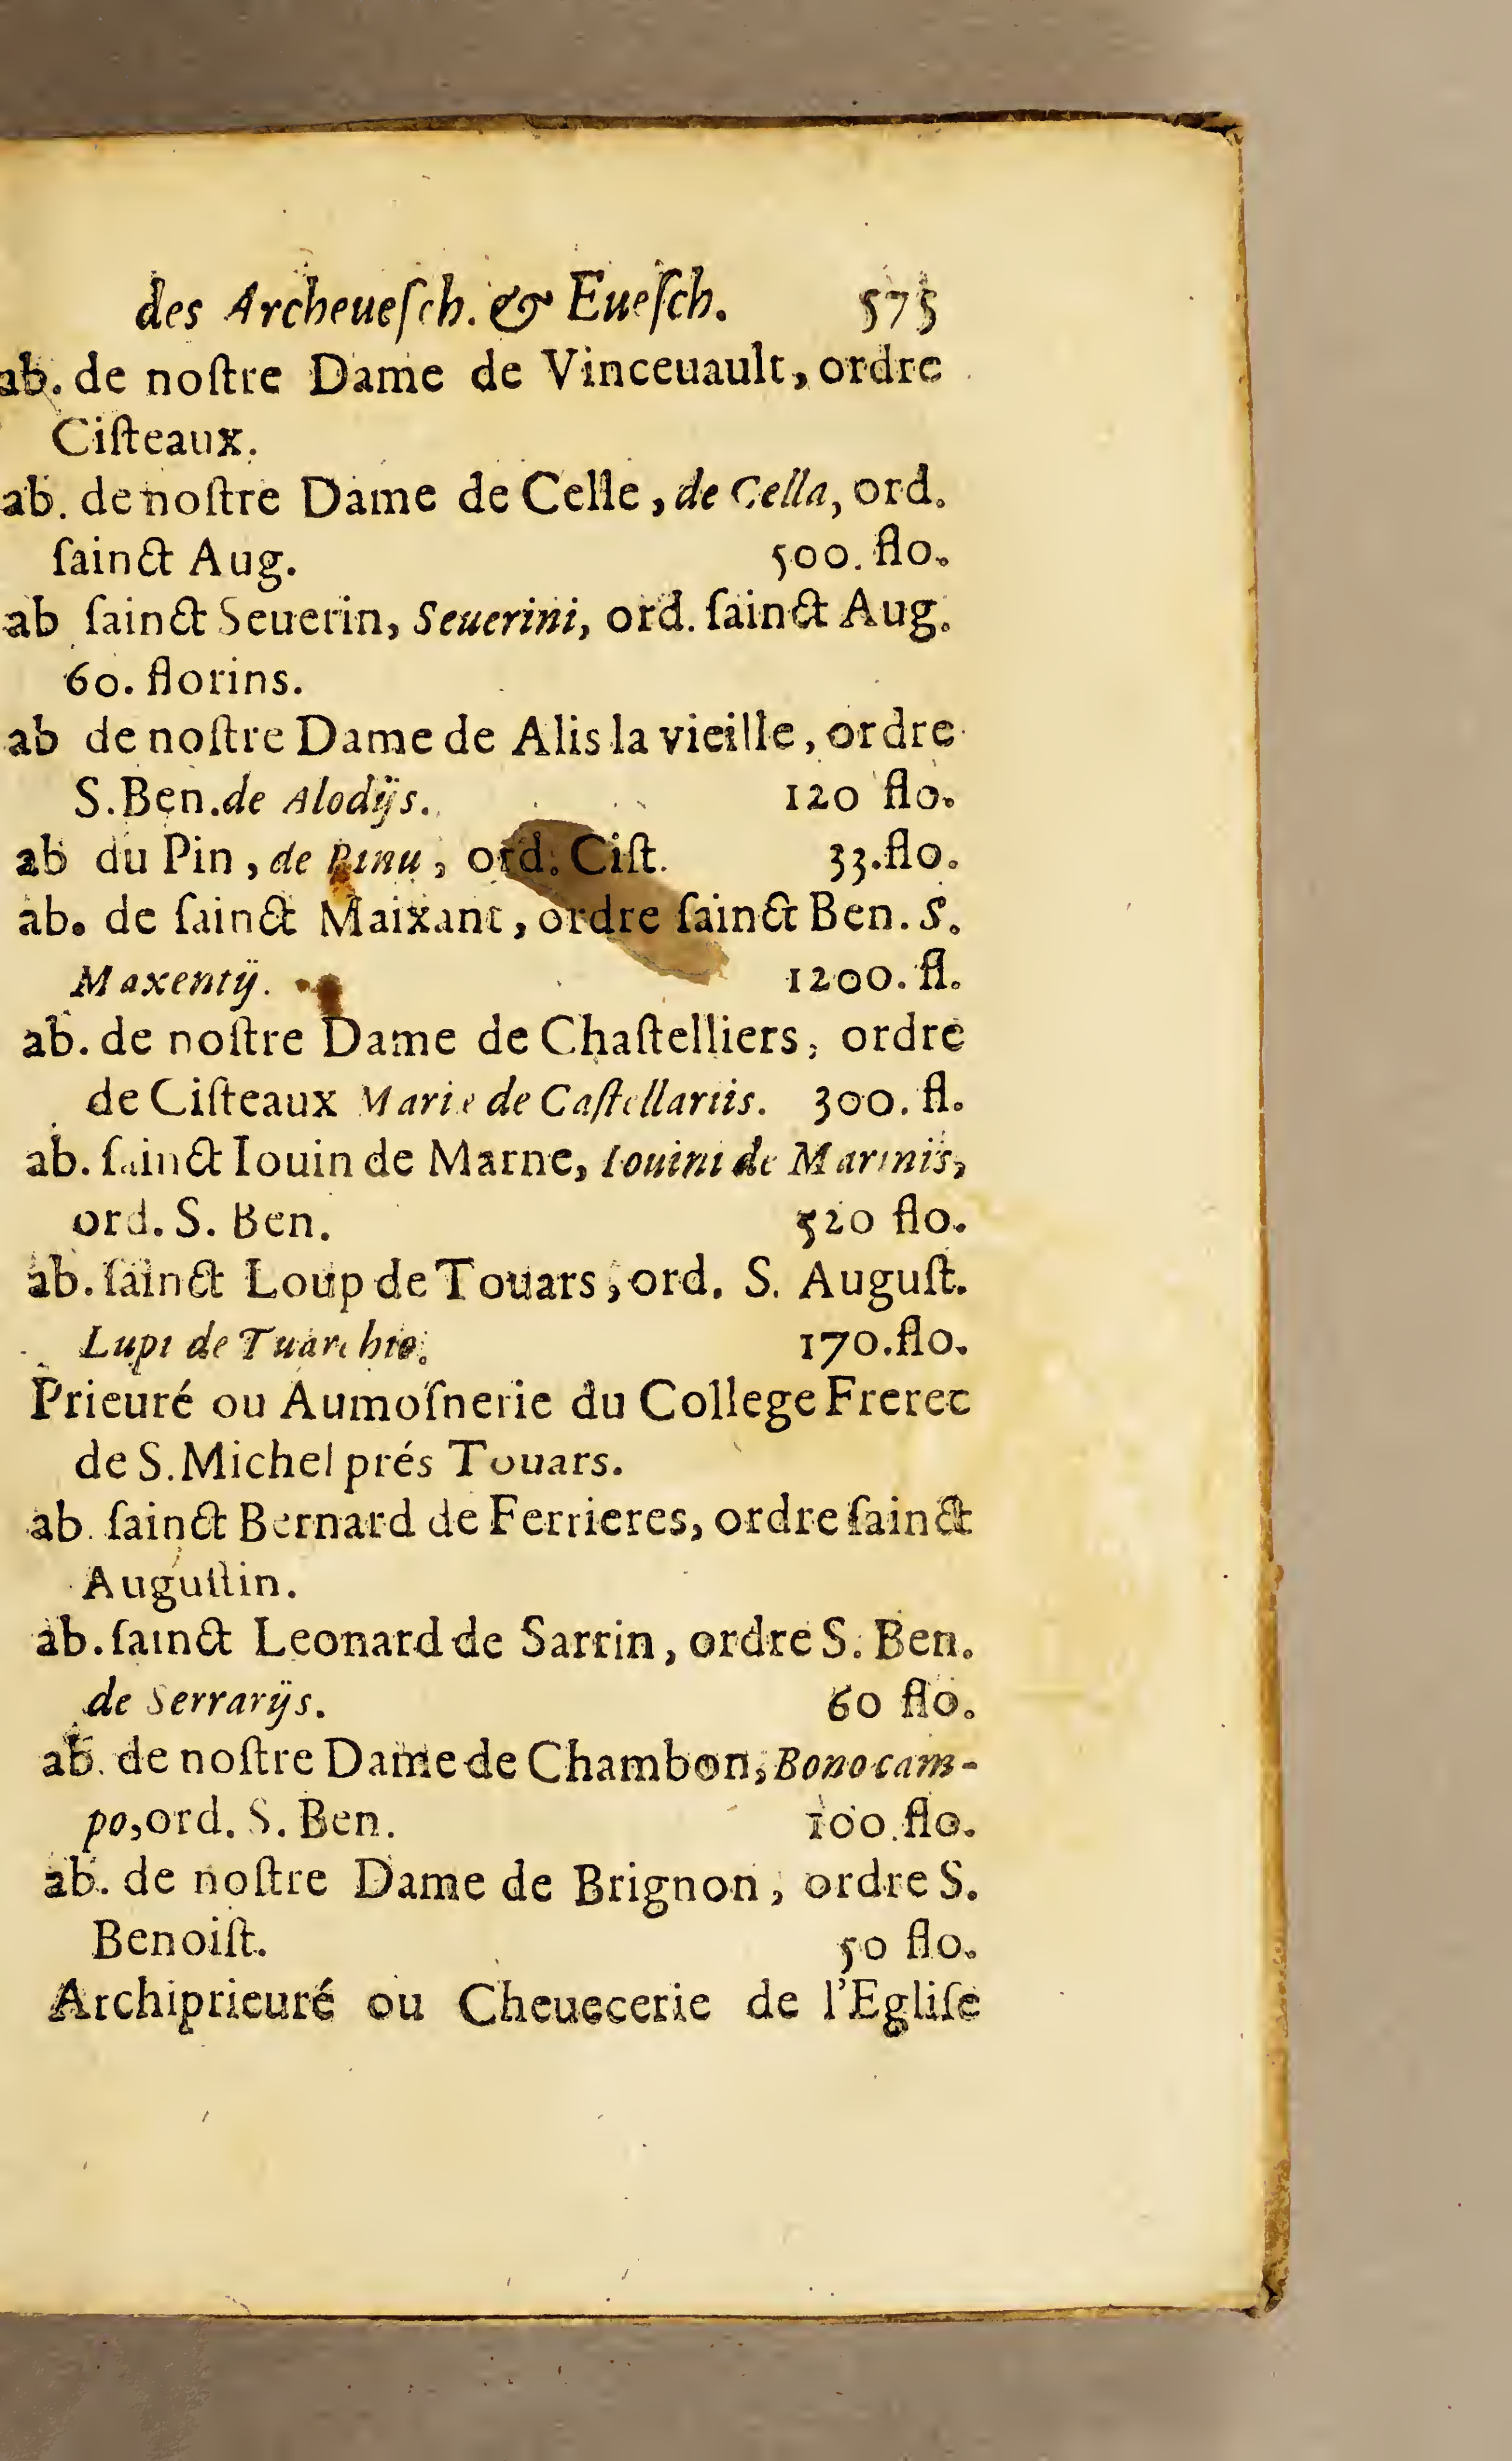 des Archeueſch. & Eueſch. 575
ab. de noſtre Dame de Vinceuault, ordre
Ciſteaux.
ab. de noſtre Dame de Celle, de Cella, ord.
ſainct Aug. 500. flo.
ab ſainct Seuerin, Seuerini, ord. ſainct Aug.
60. florins.
ab de noſtre Dame de Alis la vieille, ordre
S. Ben. de Alodijs. 120 flo.
ab du Pin, de Pinu, ord. Ciſt. 33. flo.
ab. de ſainct Maixant, ordre ſainct Ben. S.
Maxentij. 1200. fl.
ab. de noſtre Dame de Chaſtelliers, ordre
de Ciſteaux Marie de Caſtellariis. 300. fl.
ab. ſainct Iouin de Marne, Iouini de Marinis,
ord. S. Ben. 520 flo.
ab. ſainct Loup de Touars, ord. S. Auguſt.
Lupi de Tuarchio. 170. flo.
Prieuré ou Aumoſnerie du College Frerec
de S. Michel prés Touars.
ab. ſainct Bernard de Ferrieres, ordre ſainct
Auguſtin.
ab. ſainct Leonard de Sarrin, ordre S. Ben.
de Serrarijs. 60 flo.
ab. de noſtre Dame de Chambon, Bonocam-
po, ord. S. Ben. 100. flo.
ab. de noſtre Dame de Brignon, ordre S.
Benoiſt. 50 flo.
Archiprieuré ou Cheuecerie de l'Egliſe